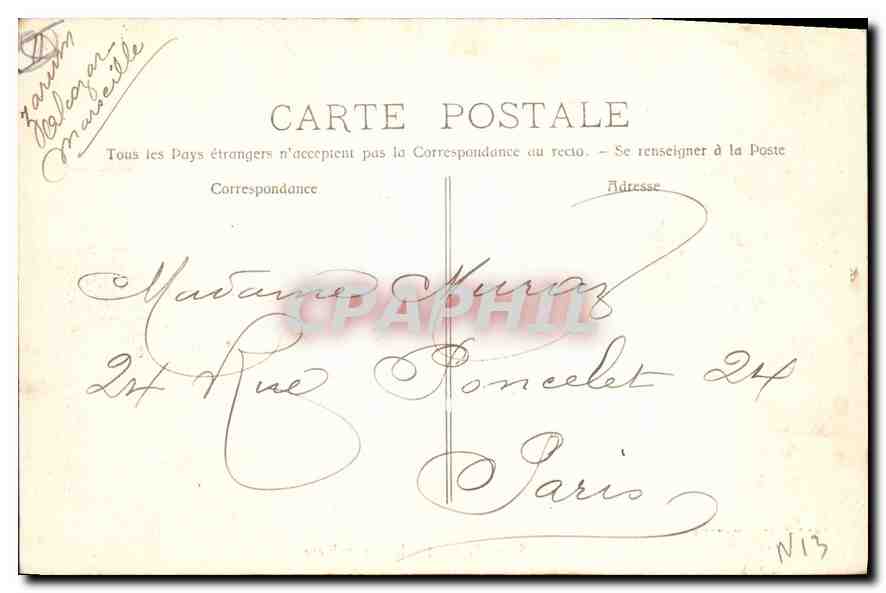 Alcazar
Marseille
CARTE POSTALE
Tous les Pays étrangers n'acceptent pas la Correspondance au recto. - Se renseigner à la Poste
Correspondance
Adresse
Madame Muraz
24 Rue Poncelet 24
Paris
CPAPHIL
N13